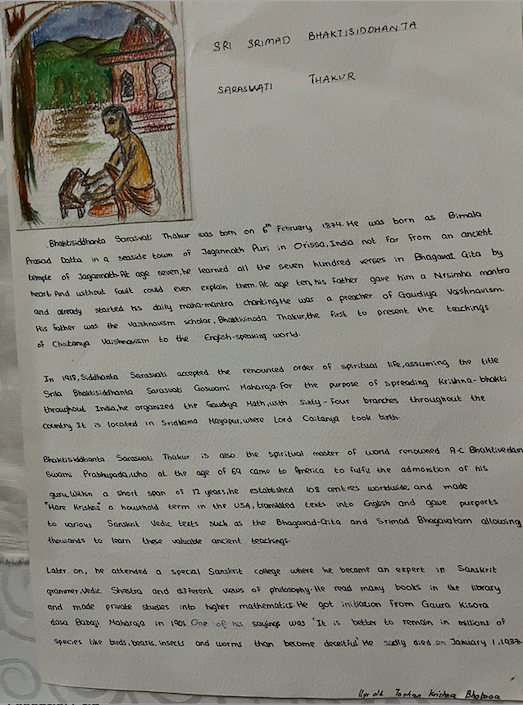 SRI SRIMAD BHAKTISIDDHANTA
SARASWATI THAKUR
Bhaktisiddhanta Saraswati Thakur was born on 6th February 1874. He was born as Bimala
Prasad Datta in a seaside town of Jagannath Puri in Orissa, India not far from an ancient
temple of Jagannath. At age seven, he learned all the seven hundred verses in Bhagavat Gita by
heart. And without fault could even explain them. At age ten, his father gave him a Nrsimha mantra
and already started his daily maha-mantra chanting. He was a preacher of Gaudiya Vaishnavism.
His father was the Vaishnavism scholar, Bhaktivinoda Thakur, the first to present the teachings
of Chaitanya Vaishnavism to the English-speaking world.
In 1918, Siddhanta Saraswati accepted the renounced order of spiritual life, assuming the title
Srila Bhaktisiddhanta Saraswati Goswami Maharaja. For the purpose of spreading Krishna-bhakti
throughout India, he organized the Gaudiya Math, with sixty-four branches throughout the
country. It is located in Sridhama Mayapur, where Lord Caitanya took birth.
Bhaktisiddhanta Saraswati Thakur is also the spiritual master of world renowned A.C Bhaktivedan
Swami Prabhupada, who at the age of 69 came to America to fulfil the admonition of his
guru. Within a short span of 12 years, he established 108 centres worldwide, and made
"Hare Krishna" a household term in the USA, translated texts into English and gave purports
to various Sanskrit Vedic texts such as the Bhagavad-Gita and Srimad Bhagavatam allowing
thousands to learn these valuable ancient teachings.
Later on, he attended a special Sanskrit college where he became an expert in Sanskrit
grammer, Vedic Shastra and different views of philosophy. He read many books in the library
and made private studies into higher mathematics. He got initiation from Gaura Kisora
dasa Babaji Maharaja in 1901. One of his sayings was 'It is better to remain in millions of
species like birds, beasts, insects and worms than become deceitful' He sadly died on January 1, 1937
11yr old Krishna